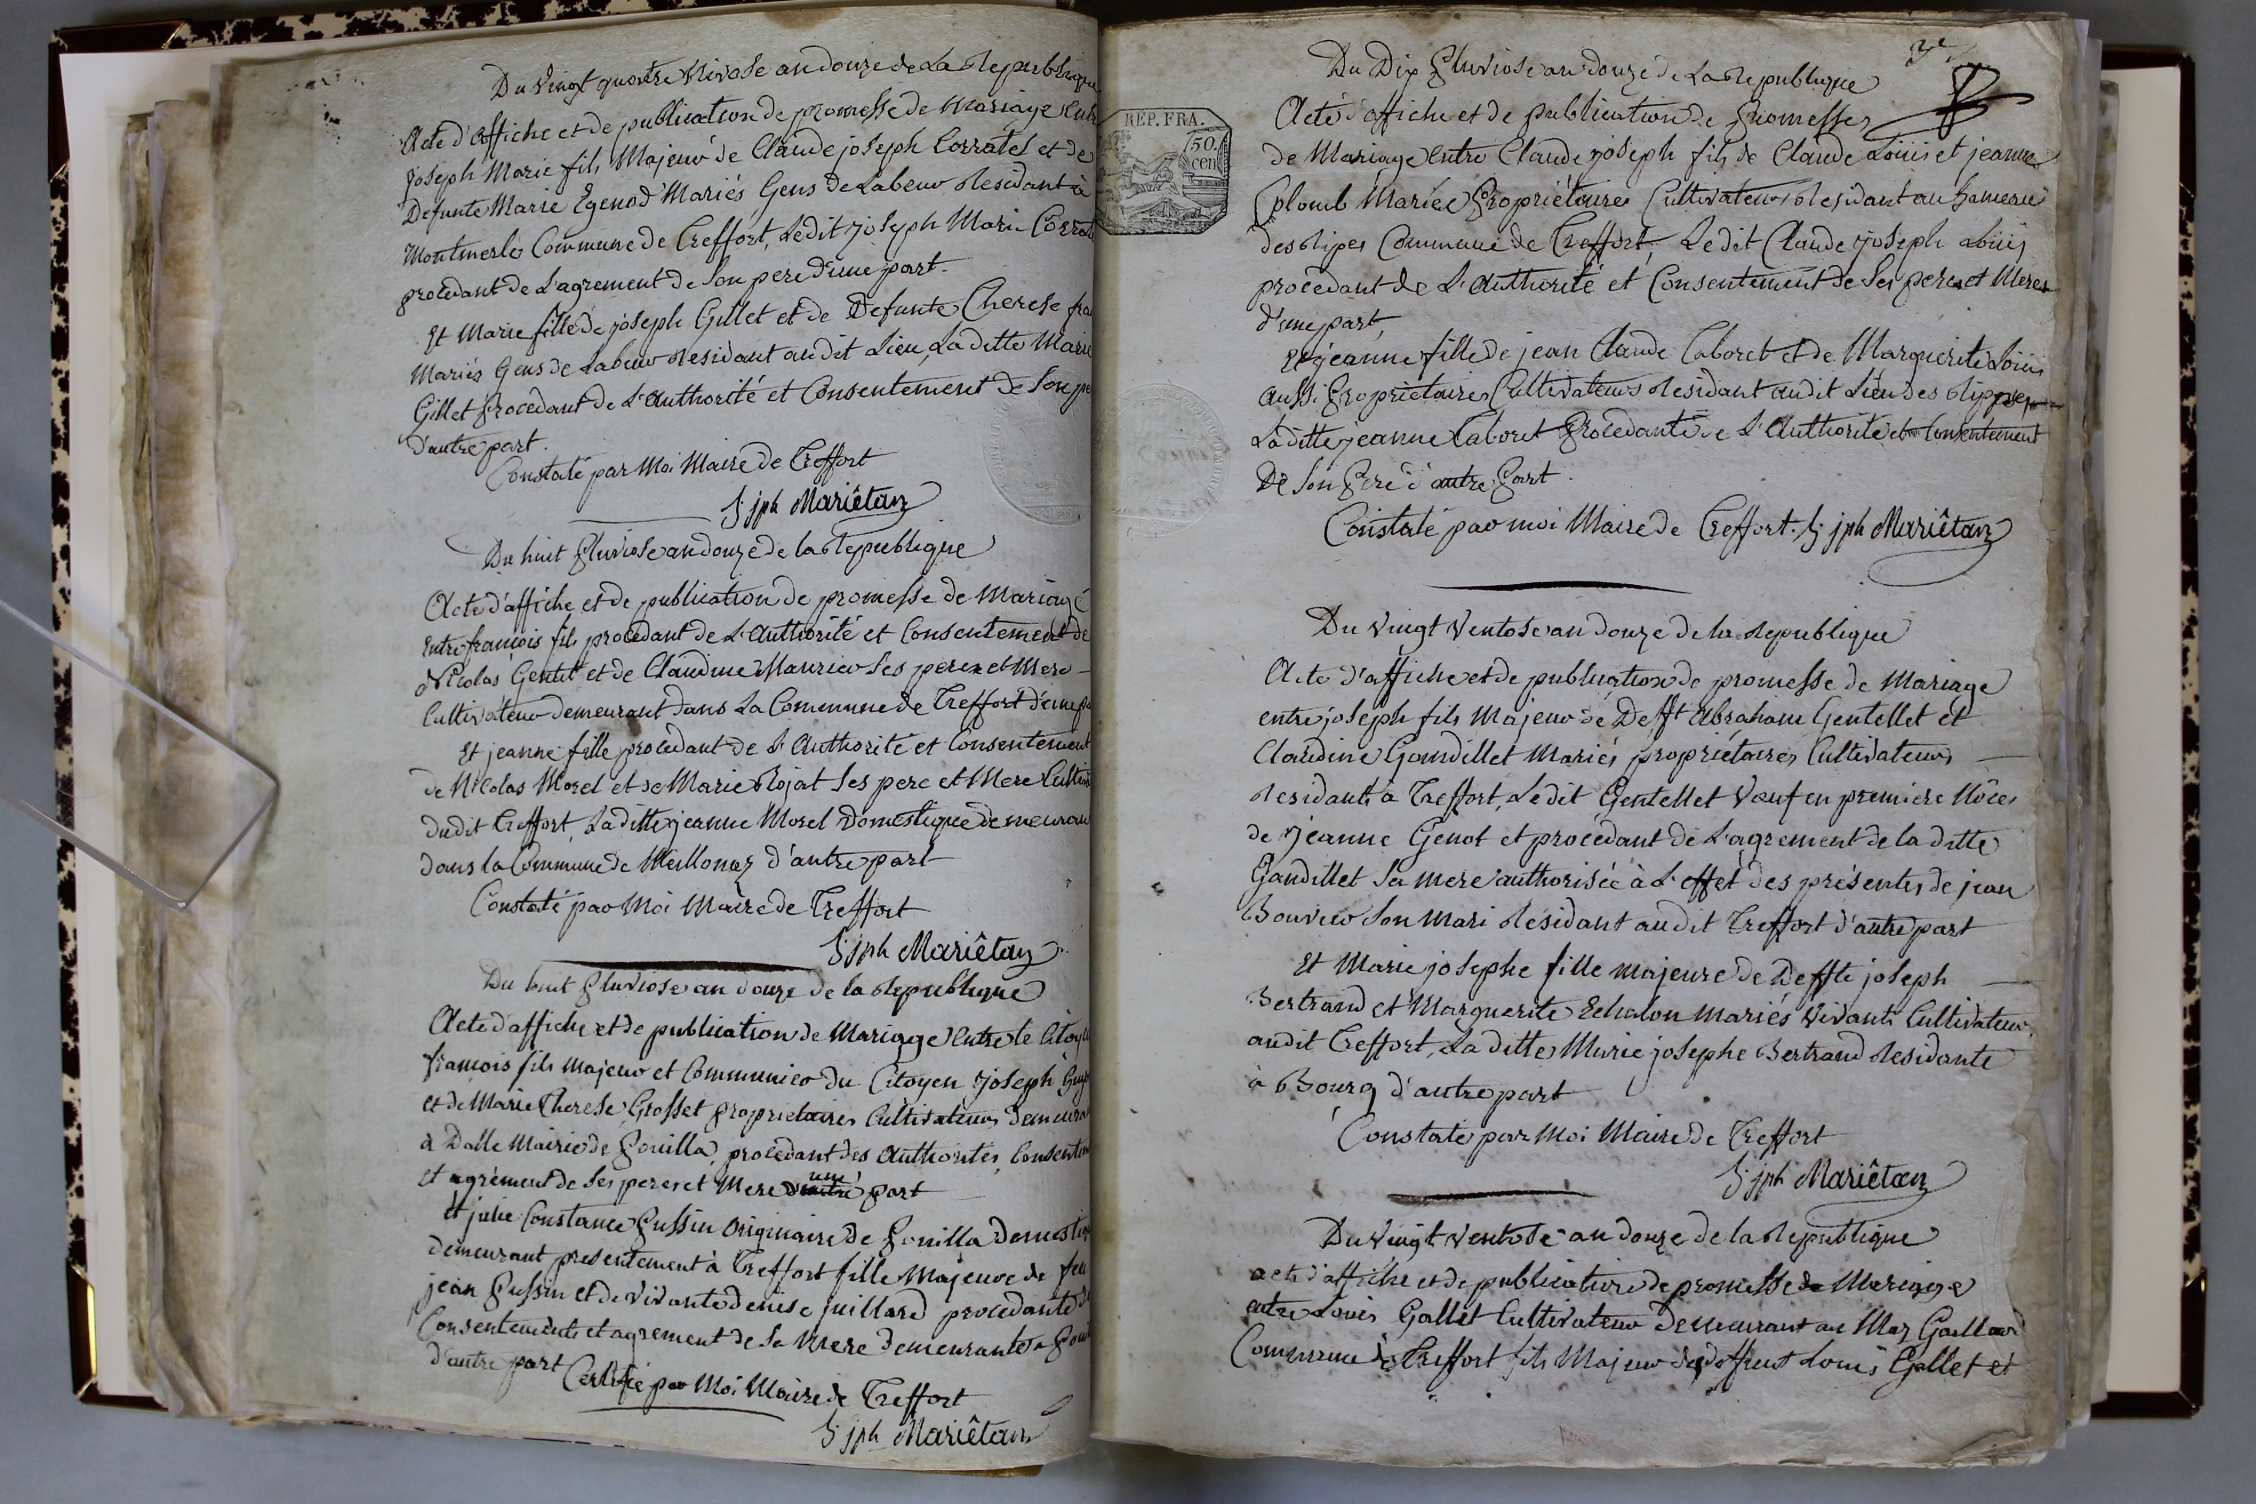 Du vingt quatre Nivose an douze de La Republique
Acte d'affiche et de publication de promesse de Mariage Entr
joseph Marie fils Majeur de Claude joseph Corratel et de
Defunte Marie Egenod Mariés Gens de Labeur Residant à
Montmerle Commune de Treffort, Ledit joseph Marie Corrat
procedant de L'agrement de son pere d'une part.
Et Marie fille de joseph Gillet et de Defunte Therese fra
Mariés Gens de Labeur Residant audit Lieu, Laditte Marie
Gillet procedant de L'authorité et Consentement de Son pe
d'autre part.
Constaté par Moi Maire de Treffort
jph Mariêtan
Du huit Pluviose an douze de la Republique
Acte d'affiche et de publication de promesse de Mariage
Entre françois fils procedant de L'authorité et Consentement de
Nicolas Gentit et de Claudine Maurier Ses peres et Mere
Cultivateur demeurant dans La Commune de Treffort d'une p
Et jeanne fille procedant de L'Authorité et Consentement
de Nicolas Morel et de Marie Rojat Ses pere et Mere Cultiv
dudit Treffort Laditte jeanne Morel Domestique demeuran
dans la Commune de Meillonaz d'autre part
Constaté par Moi Maire de Treffort
jph Mariêtan
Du huit Pluviose an douze de la Republique
Acte d'affiche et de publication de Mariage Entre le Citoye
françois fils Majeur et Communier du Citoyen joseph Guy
et de Marie Therese Grosset proprietaires Cultivateurs demeura
à Dalle Mairie de Pouilla, procedant des Authorités, Consentem
et agrément de Ses peres et Mere d'une part
Et julie Constance Pussin Originaire de Pouilla Domestiq
demeurant presentement à Treffort fille Majeure de feu
jean Pussin et de vivante denise juillard procedante du
Consentement et agrement de Sa Mere demeurante a Poui
d'autre part Certifié par Moi Maire de Treffort
jph Mariêtan
REP. FRA.
50.
cen
Du Dix Pluviose an douze de La Republique
Acte d'affiche et de publication de Promesses
de Mariage Entre Claude joseph fils de Claude Louis et jeanne
Colomb Mariée Propriétaires Cultivateurs Residant au hameau
des Ripes Commune de Treffort, Ledit Claude joseph Louis
procedant de L'authorité et Consentement de Ses peres et Meres
d'une part,
Et jeanne fille de jean Claude Caboret et de Marguerite Louis
aussi Propriétaires Cultivateurs Residant audit Lieu des Rippes
Laditte jeanne Caboret Procedante de L'Authorité et Consentement
De Son Pere d'autre Part.
Constaté par moi Maire de Treffort. jph Mariêtan
Du vingt Ventose an douze de la Republique
Acte d'affiche et de publication de promesse de Mariage
entre joseph fils Majeur de Defft Abraham Gentellet et
Claudine Gandillet Mariés propriétaires Cultivateurs
Residants à Treffort, Ledit Gentellet Veuf en premiere Nôces
de jeanne Genot et procedant de L'agrement de la ditte
Gandillet Sa mere authorisée à L'effet des présentes de jean
Bouvier Son Mari Residant audit Treffort d'autre part
Et Marie josephe fille majeure de Deffte joseph
Bertrand et Marguerite Echalon mariés vivants Cultivateurs
audit Treffort, La ditte Marie josephe Bertrand Residante
à Bourg d'autre part
Constaté par Moi Maire de Treffort
jph Mariêtan
Du vingt ventose an douze de la Republique
acte d'affiche et de publication de promesse de Mariage
entre Louis Gallet Cultivateur Demeurant au Maz Gaillard
Commune de Treffort fils Majeur de deffunt Louis Gallet et